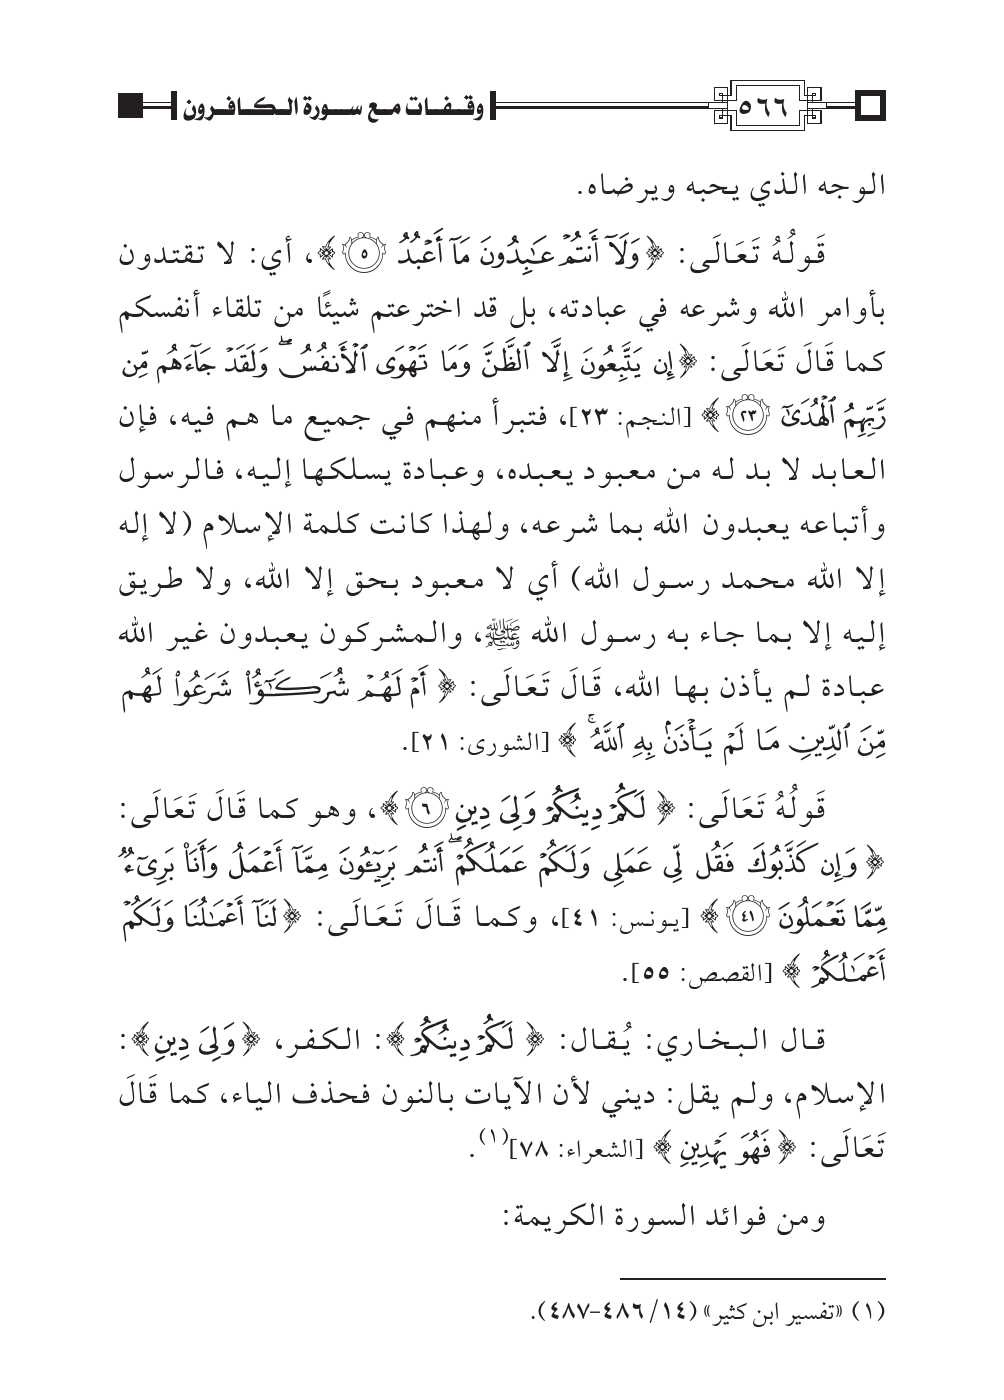 ٥٦٦ وقفات مع سورة الكافرون
الوجه الذي يحبه ويرضاه.
قَولُهُ تَعَالَى: ﴿وَلَآ أَنتُمۡ عَٰبِدُونَ مَآ أَعۡبُدُ ٥﴾، أي: لا تقتدون
بأوامر الله وشرعه في عبادته، بل قد اخترعتم شيئًا من تلقاء أنفسكم
كما قَالَ تَعَالَى: ﴿إِن يَتَّبِعُونَ إِلَّا ٱلظَّنَّ وَمَا تَهۡوَى ٱلۡأَنفُسُۖ وَلَقَدۡ جَآءَهُم مِّن
رَّبِّهِمُ ٱلۡهُدَىٰٓ ٢٣﴾ [النجم: ٢٣]، فتبرأ منهم في جميع ما هم فيه، فإن
العابد لا بد له من معبود يعبده، وعبادة يسلكها إليه، فالرسول
وأتباعه يعبدون الله بما شرعه، ولهذا كانت كلمة الإسلام (لا إله
إلا الله محمد رسول الله) أي لا معبود بحق إلا الله، ولا طريق
إليه إلا بما جاء به رسول الله ﷺ، والمشركون يعبدون غير الله
عبادة لم يأذن بها الله، قَالَ تَعَالَى: ﴿أَمۡ لَهُمۡ شُرَكَٰٓؤُاْ شَرَعُواْ لَهُم
مِّنَ ٱلدِّينِ مَا لَمۡ يَأۡذَنۢ بِهِ ٱللَّهُۚ﴾ [الشورى: ٢١].
قَولُهُ تَعَالَى: ﴿لَكُمۡ دِينُكُمۡ وَلِيَ دِينِ ٦﴾، وهو كما قَالَ تَعَالَى:
﴿وَإِن كَذَّبُوكَ فَقُل لِّي عَمَلِي وَلَكُمۡ عَمَلُكُمۡۖ أَنتُم بَرِيٓـُٔونَ مِمَّآ أَعۡمَلُ وَأَنَا۠ بَرِيٓءٞ
مِّمَّا تَعۡمَلُونَ ٤١﴾ [يونس: ٤١]، وكما قَالَ تَعَالَى: ﴿لَنَآ أَعۡمَٰلُنَا وَلَكُمۡ
أَعۡمَٰلُكُمۡ﴾ [القصص: ٥٥].
قال البخاري: يُقال: ﴿لَكُمۡ دِينُكُمۡ﴾: الكفر، ﴿وَلِيَ دِينِ﴾:
الإسلام، ولم يقل: ديني لأن الآيات بالنون فحذف الياء، كما قَالَ
تَعَالَى: ﴿فَهُوَ يَهۡدِينِ﴾ [الشعراء: ٧٨](١).
ومن فوائد السورة الكريمة:
(١) «تفسير ابن كثير» (١٤/ ٤٨٦-٤٨٧).